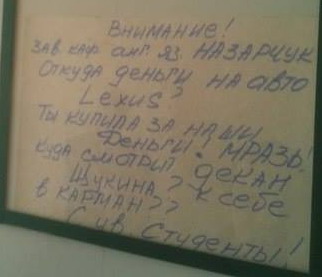 Внимание!
Зав каф анг яз. НАЗАРЧУК
Откуда деньги на авто
Lexus?
Ты купила за наши
деньги! МРАЗЬ!
Куда смотрит декан
Щукина? К себе
в карман??
С ув. Студенты!